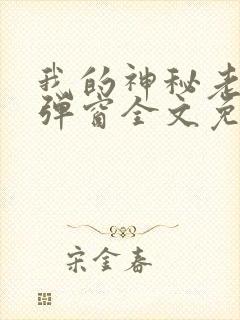 我的神秘老
弹窗全文免
宋金春